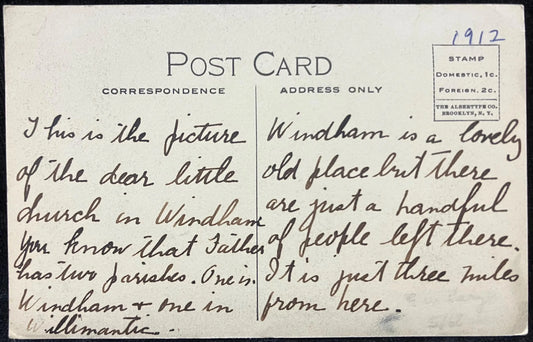 1912
POST CARD
CORRESPONDENCE
ADDRESS ONLY
STAMP
DOMESTIC, 1c.
FOREIGN, 2c.
THE ALBERTYPE CO.
BROOKLYN, N. Y.
This is the picture
of the dear little
church in Windham
You know that Father
has two parishes. One in
Windham & one in
Willimantic.
Windham is a lovely
old place but there
are just a handful
of people left there.
It is just three miles
from here.